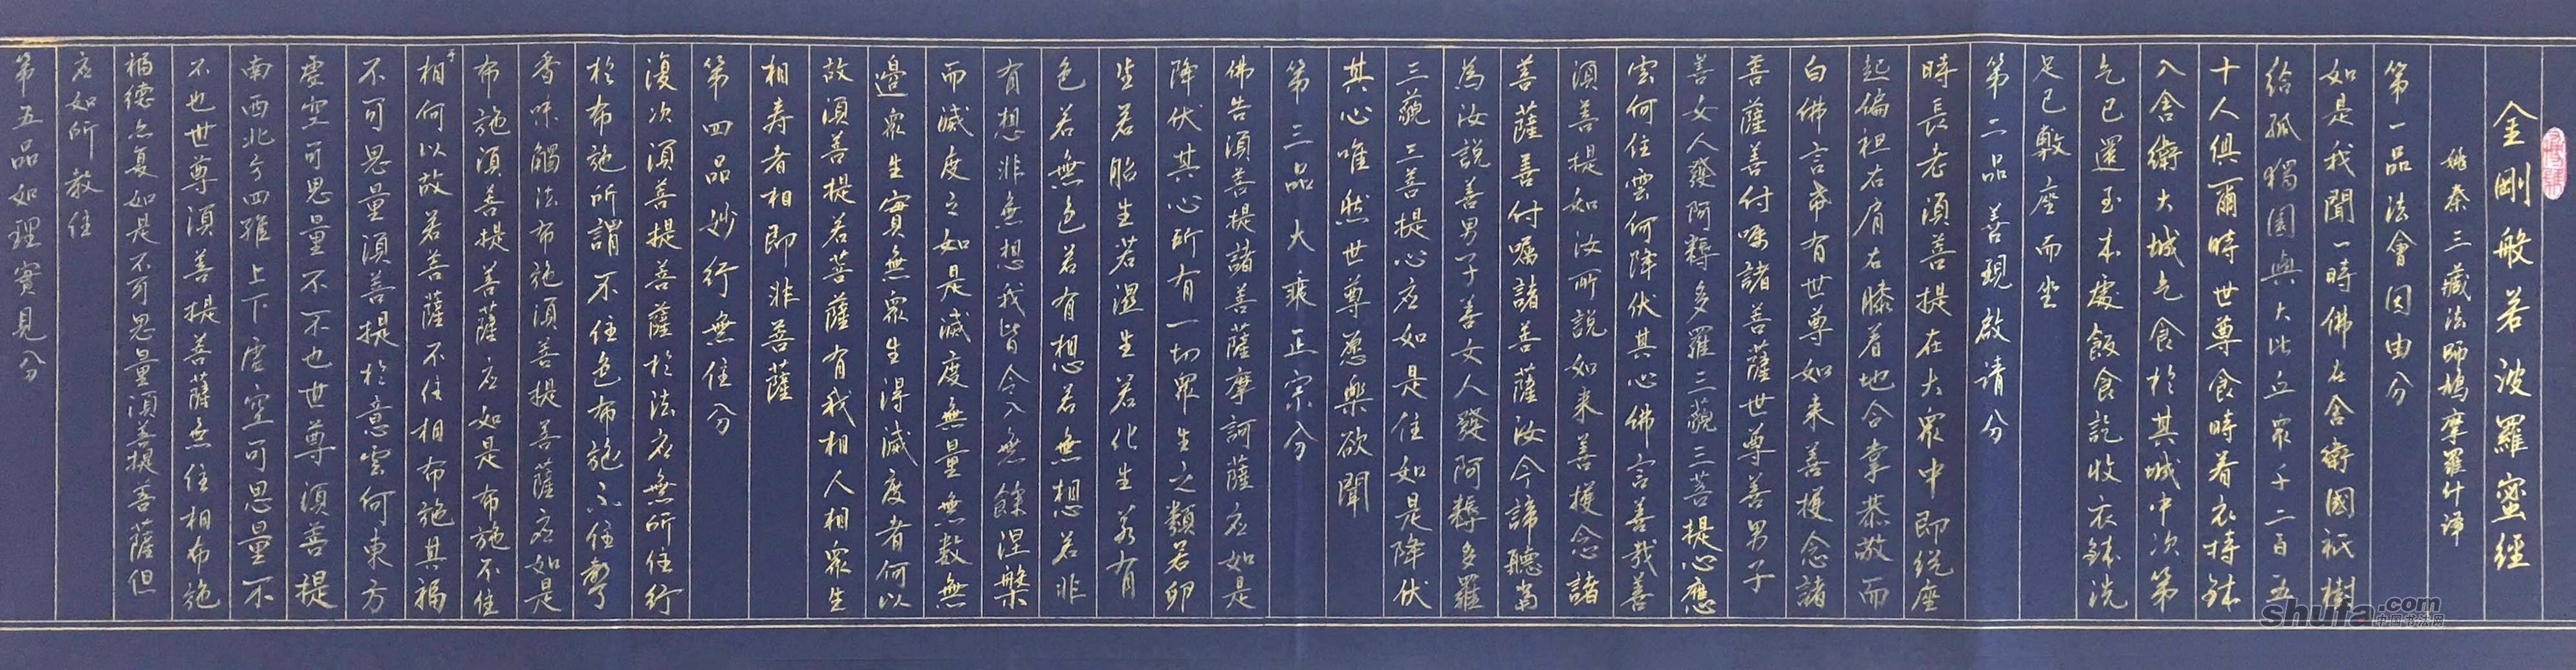 金剛般若波羅蜜經
姚秦三藏法師鳩摩羅什译
第一品法會因由分
如是我聞一時佛在舍衛國祇樹
給孤獨園與大比丘眾千二百五
十人俱爾時世尊食時着衣持鉢
入舍衛大城乞食於其城中次第
乞已還至本處飯食訖收衣鉢洗
足已敷座而坐
第二品善現啟请分
時長老須菩提在大眾中即從座
起偏袒右肩右膝着地合掌恭敬而
白佛言希有世尊如来善護念諸
菩薩善付嘱諸菩薩世尊善男子
善女人發阿耨多羅三藐三菩提心應
云何住雲何降伏其心佛言善哉善
須菩提如汝所説如来善護念諸
菩薩善付嘱諸菩薩汝今諦聽當
為汝說善男子善女人發阿耨多羅
三藐三菩提心应如是住如是降伏
其心唯然世尊愿樂欲聞
第三品大乘正宗分
佛告須菩提諸菩薩摩訶薩应如是
降伏其心所有一切眾生之類若卵
生若胎生若濕生若化生若有
色若無色若有想若無想若非
有想非無想我皆令入無餘涅槃
而滅度之如是滅度無量無数無
邊眾生實無眾生得滅度者何以
故須菩提若菩薩有我相人相眾生
相寿者相即非菩薩
第四品妙行無住分
復次須菩提菩薩於法应無所住行
於布施所謂不住色布施不住聲
香味觸法布施須菩提菩薩应如是
布施須菩提菩薩应如是布施不住
相何以故若菩薩不住相布施其福
不可思量須菩提於意云何東方
虚空可思量不不也世尊須菩提
南西北方四維上下虚空可思量不
不也世尊須菩提菩薩無住相布施
福德亦复如是不可思量須菩提菩薩但
应如所教住
第五品如理實見分
shufa.com
中国书法网